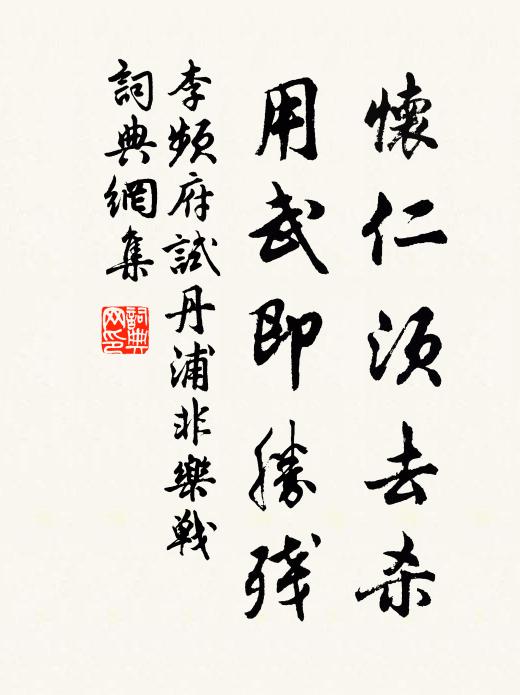 懷仁須去杀
用武即勝殘
李頻府試丹浦非樂戰
詞典網集
詞典网印